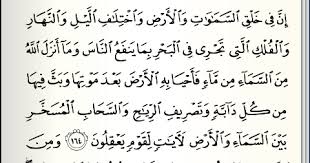 إِنَّ فِي خَلْقِ ٱلسَّمَٰوَٰتِ وَٱلْأَرْضِ وَٱخْتِلَٰفِ ٱلَّيْلِ وَٱلنَّهَارِ
وَٱلْفُلْكِ ٱلَّتِي تَجْرِي فِي ٱلْبَحْرِ بِمَا يَنفَعُ ٱلنَّاسَ وَمَآ أَنزَلَ ٱللَّهُ
مِنَ ٱلسَّمَآءِ مِن مَّآءٍ فَأَحْيَا بِهِ ٱلْأَرْضَ بَعْدَ مَوْتِهَا وَبَثَّ فِيهَا
مِن كُلِّ دَآبَّةٍ وَتَصْرِيفِ ٱلرِّيَٰحِ وَٱلسَّحَابِ ٱلْمُسَخَّرِ
بَيْنَ ٱلسَّمَآءِ وَٱلْأَرْضِ لَأٓيَٰتٍ لِّقَوْمٍ يَعْقِلُونَ ١٦٤ وَمِنَ